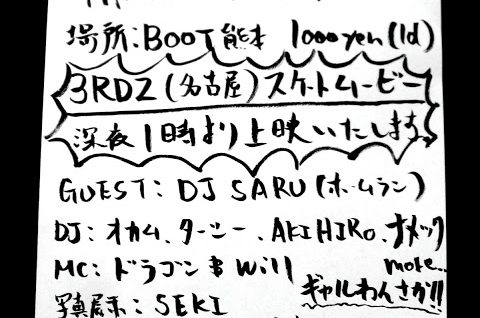 場所:BOOT熊本 1000yen(1d)
3RDZ(名古屋)スケートムービー
深夜1時より上映いたします。
GUEST: DJ SARU(ホームラン)
DJ:オカム、ターシー、AKIHIRO、ナメック
MC:ドラゴン & Will more..
ギャルわんさか!!
写真展示:SEKI